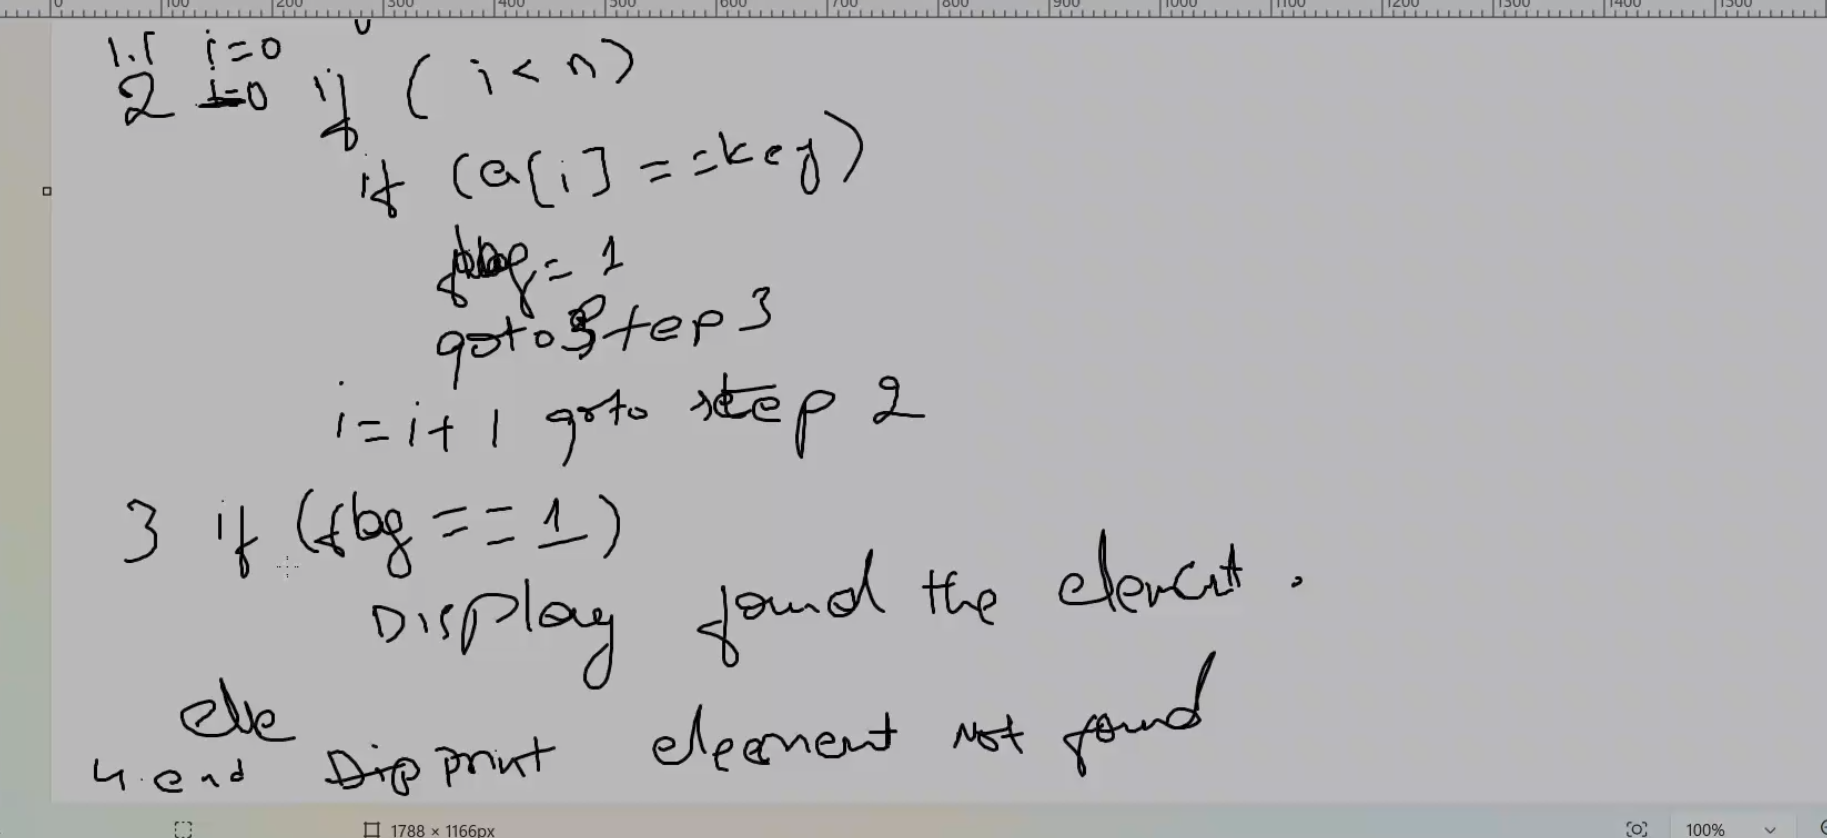 0 100 200 300 400 500 600 700 800 900 1000 1100 1200 1300 1400 1500
1.1 i=0
2 i=0 if ( i < n )
if (a[i] = =key)
flag = 1
goto step 3
i = i + 1 goto step 2
3 if (flag == 1)
Display found the element .
else
4. end Dip print eleement Not found
1788 × 1166px 100%